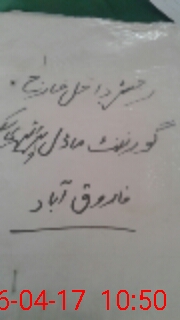 رجسٹر داخل خارج
گورنمنٹ ماڈل ہائی
فاروق آباد
6-04-17 10:50